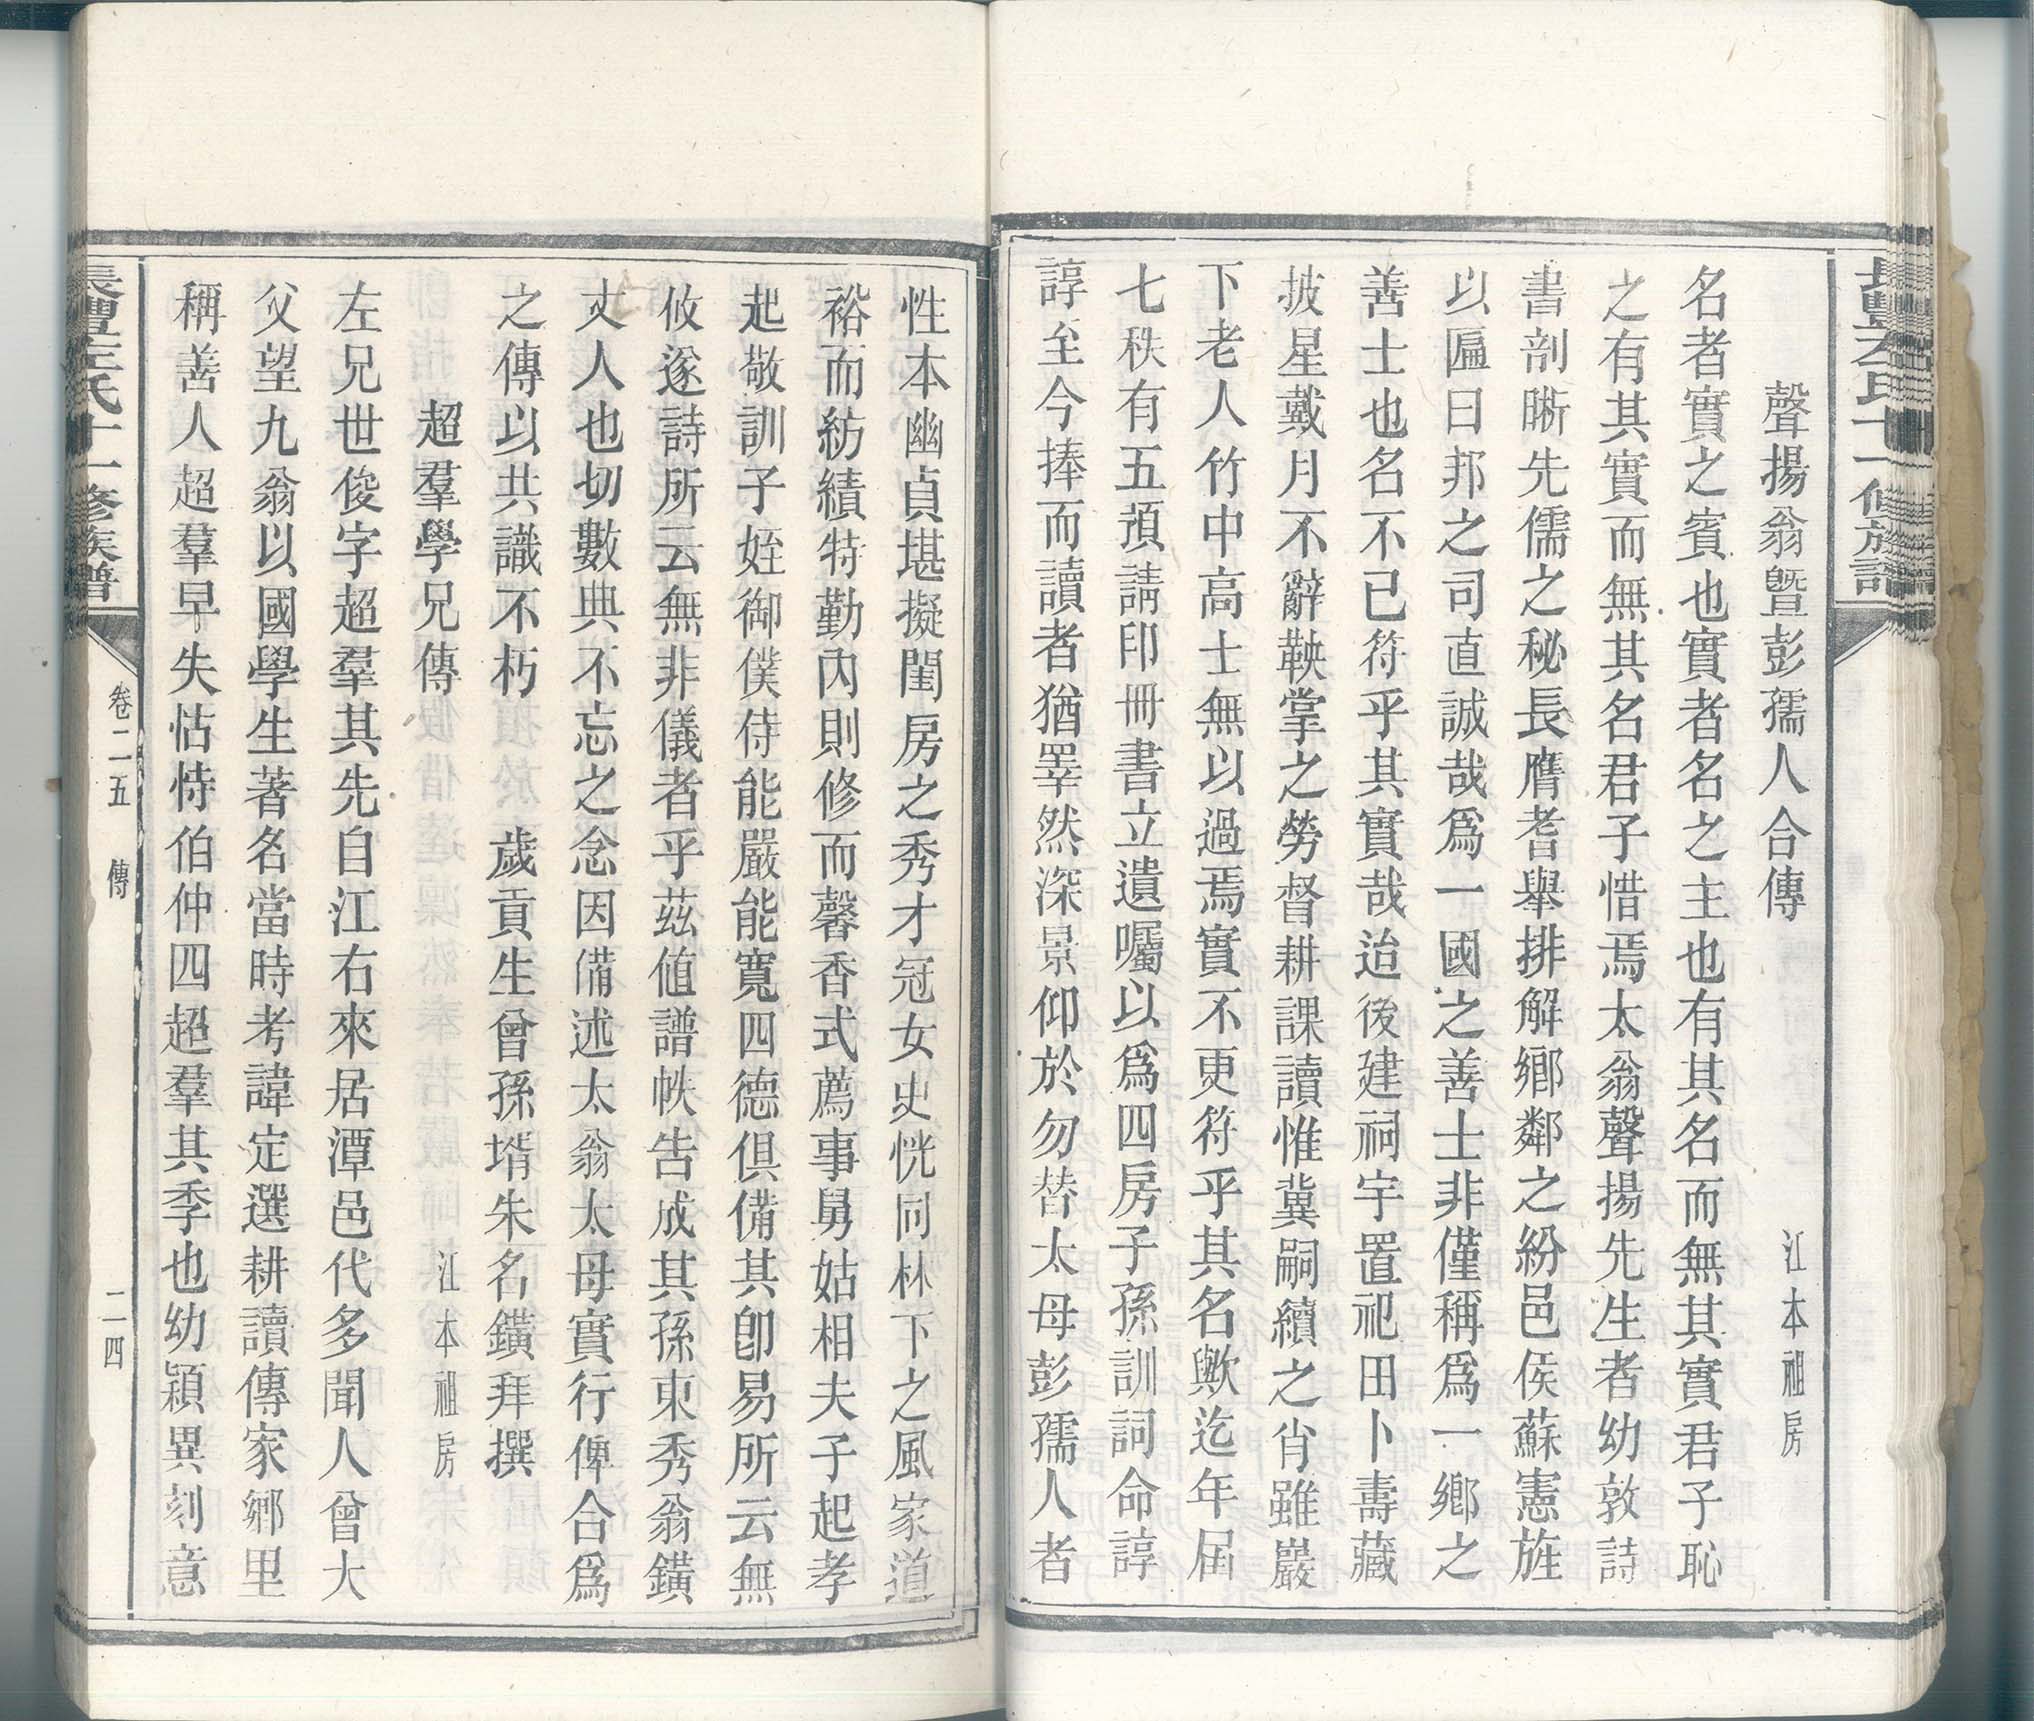 長豐左氏十一修族譜
聲揚翁曁彭孺人合傳 江本祖房
名者實之賓也實者名之主也有其名而無其實君子恥
之有其實而無其名君子惜焉太翁聲揚先生者幼敦詩
書剖晰先儒之秘長膺耆舉排解鄉鄰之紛邑侯蘇憲旌
以匾曰邦之司直誠哉爲一國之善士非僅稱爲一鄉之
善士也名不已符乎其實哉迨後建祠宇置祀田卜壽藏
披星戴月不辭鞅掌之勞督耕課讀惟冀嗣續之肖雖巖
下老人竹中高士無以過焉實不更符乎其名歟迄年屆
七秩有五預請印冊書立遺囑以爲四房子孫訓詞命諄
諄至今捧而讀者猶睪然深景仰於勿替太母彭孺人者
性本幽貞堪擬閨房之秀才冠女史恍同林下之風家道
裕而紡績特勤內則修而馨香式薦事舅姑相夫子起孝
起敬訓子姪御僕侍能嚴能寬四德俱備其卽易所云無
攸遂詩所云無非儀者乎茲值譜帙告成其孫東秀翁鐄
丈人也切數典不忘之念因備述太翁太母實行俾合爲
之傳以共識不朽 歲貢生曾孫壻朱名鐄拜撰
超羣學兄傳 江本祖房
左兄世俊字超羣其先自江右來居潭邑代多聞人曾大
父望九翁以國學生著名當時考諱定選耕讀傳家鄉里
稱善人超羣早失怙恃伯仲四超羣其季也幼穎異刻意
長豐左氏十一修族譜
卷二五 傳 二四